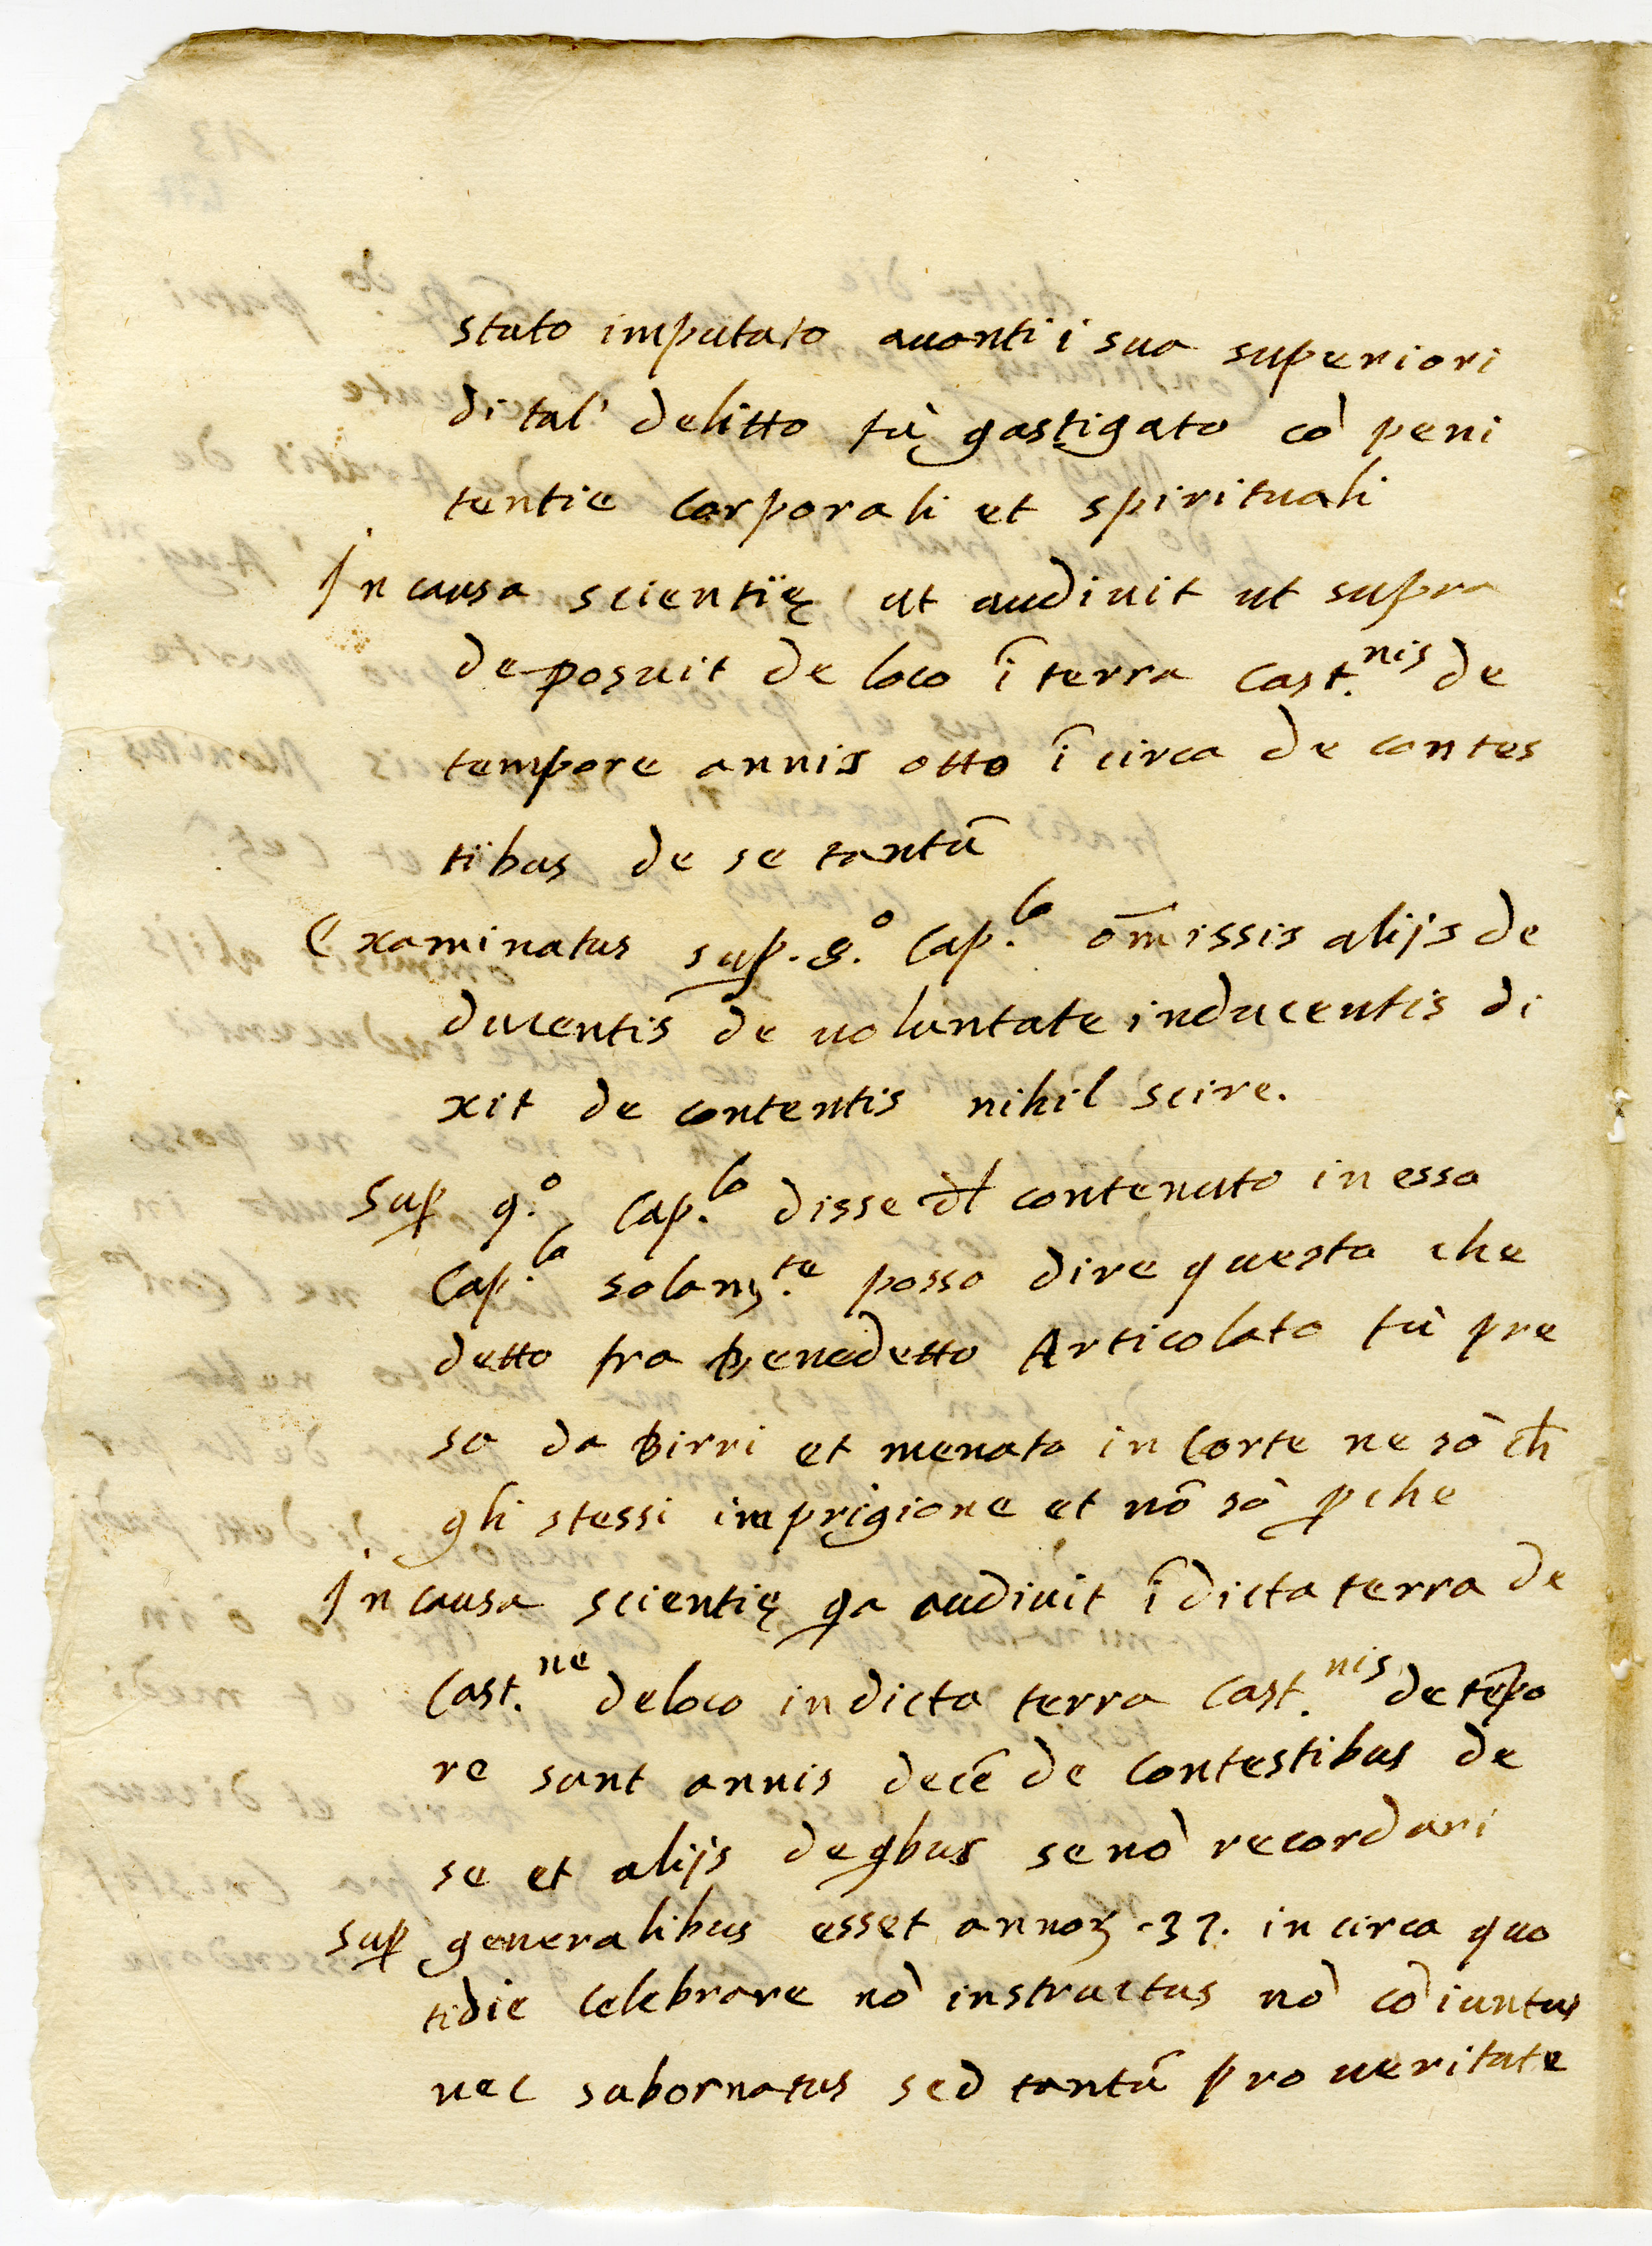 stato imputato auanti i suo superiori
di tal' delitto fù gastigato cō peni
tentie corporali et spirituali
In causa scientię ut audiuit ut supra
deposuit de loco ī terra Cast.nis de
tempore annis otto ī circa de contes
tibus de se tantū
Examinatus sup. 8.º Cap.lo om̄issis alijs de
ducentis de uoluntate inducentis di
xit de contentis nihil scire.
Sup 9.º Cap.lo disse dl contenuto in esso
Cap.lo solam.te posso dire questo che
detto fra Benedetto Articolato fù pre
so da Birri et menato in Corte ne sò ch
gli stessi imprigione et nō sò pche
In causa scientię qa audiuit ī dicta terra de
Cast.ne de loco in dicta terra Cast.nis de tēpo
re sunt annis decē de Contestibus de
se et alijs de qbus se nō recordari
Sup generalibus esset annoꝝ -37. in circa quo
tidie celebrare nō instructus nō cōiuntus
nec subornatus sed tantū pro ueritate